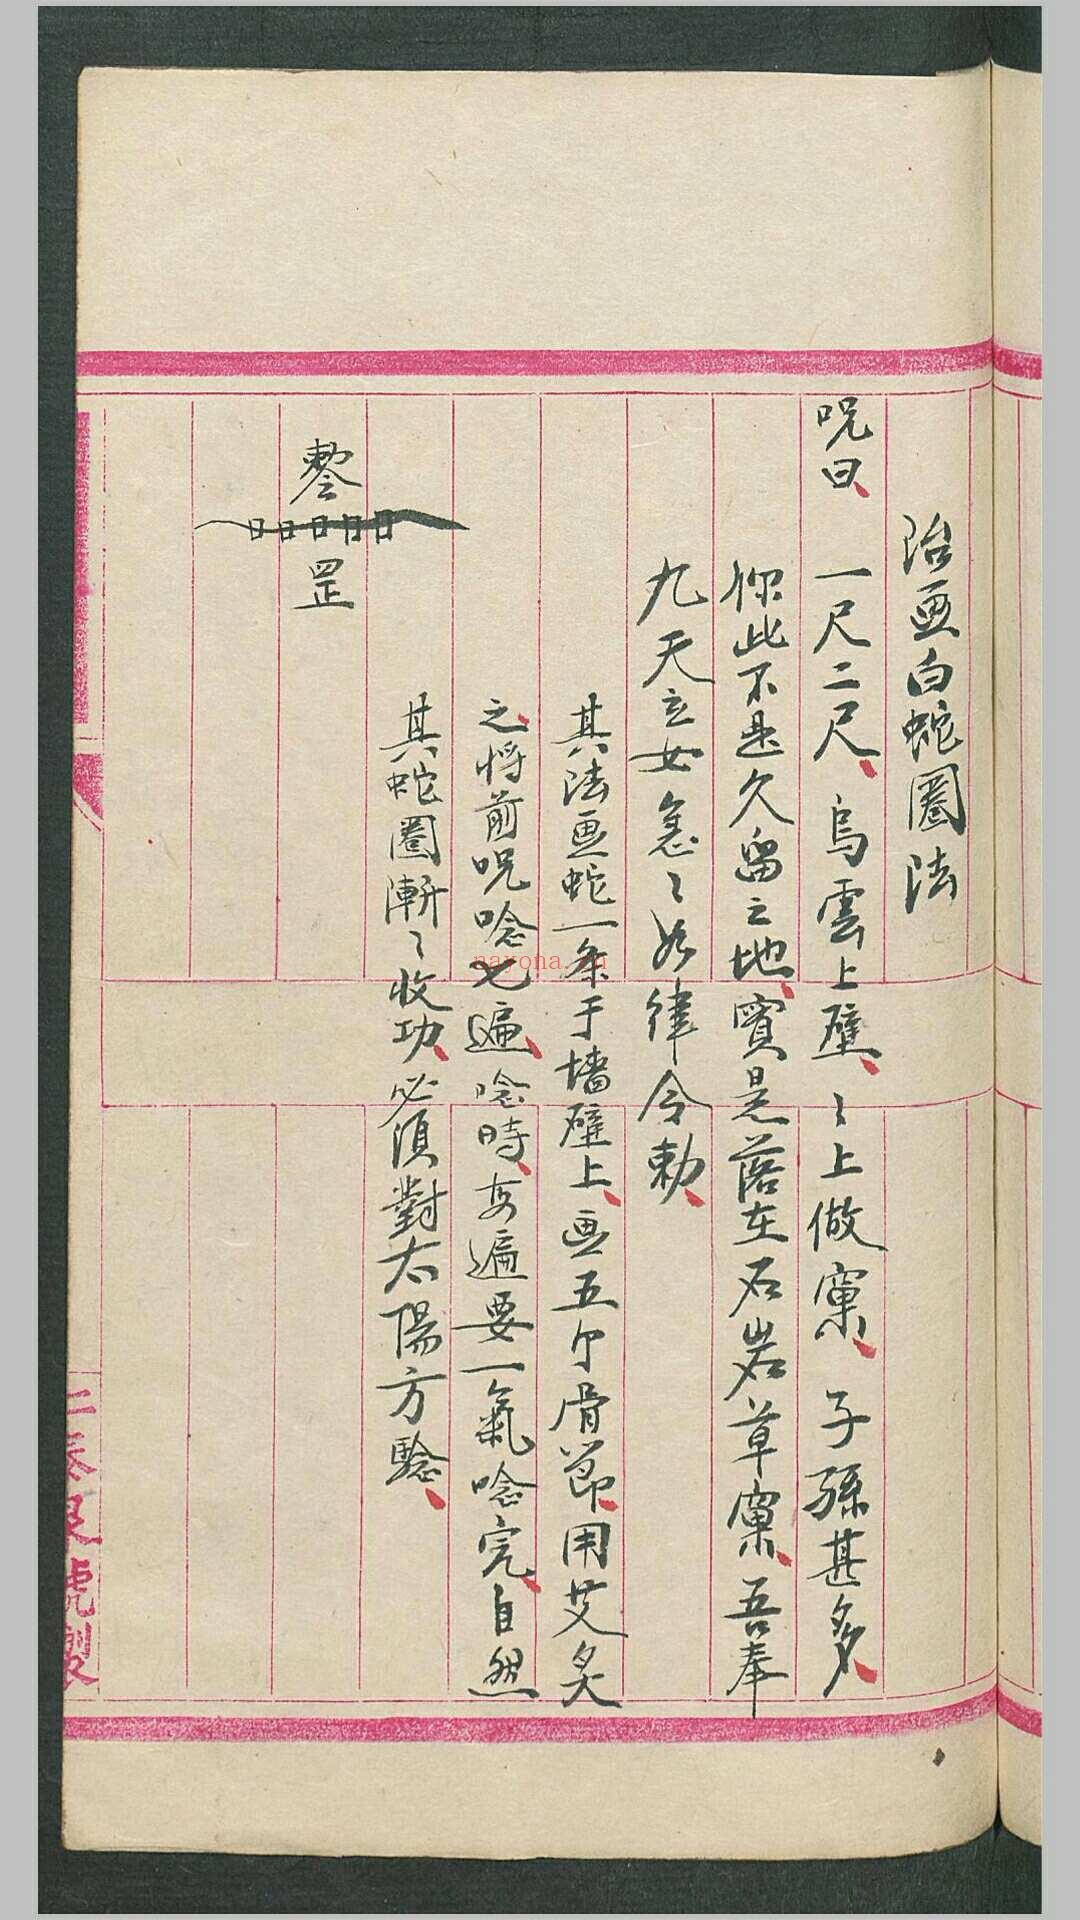 治画白蛇圈法
呪曰、一尺二尺、烏雲上壁、〻上做窠、子孫甚多、
你此不是久留之地、實是落在石岩草窠、吾奉
九天玄女急〻如律令勅、
其法画蛇一条于墙壁上、画五个骨節、用艾炙
之、将前呪唸七遍、唸時、每遍要一氣唸完、自然
其蛇圈漸〻收功、必須對太陽方驗、
罡
nayona.cn
號製